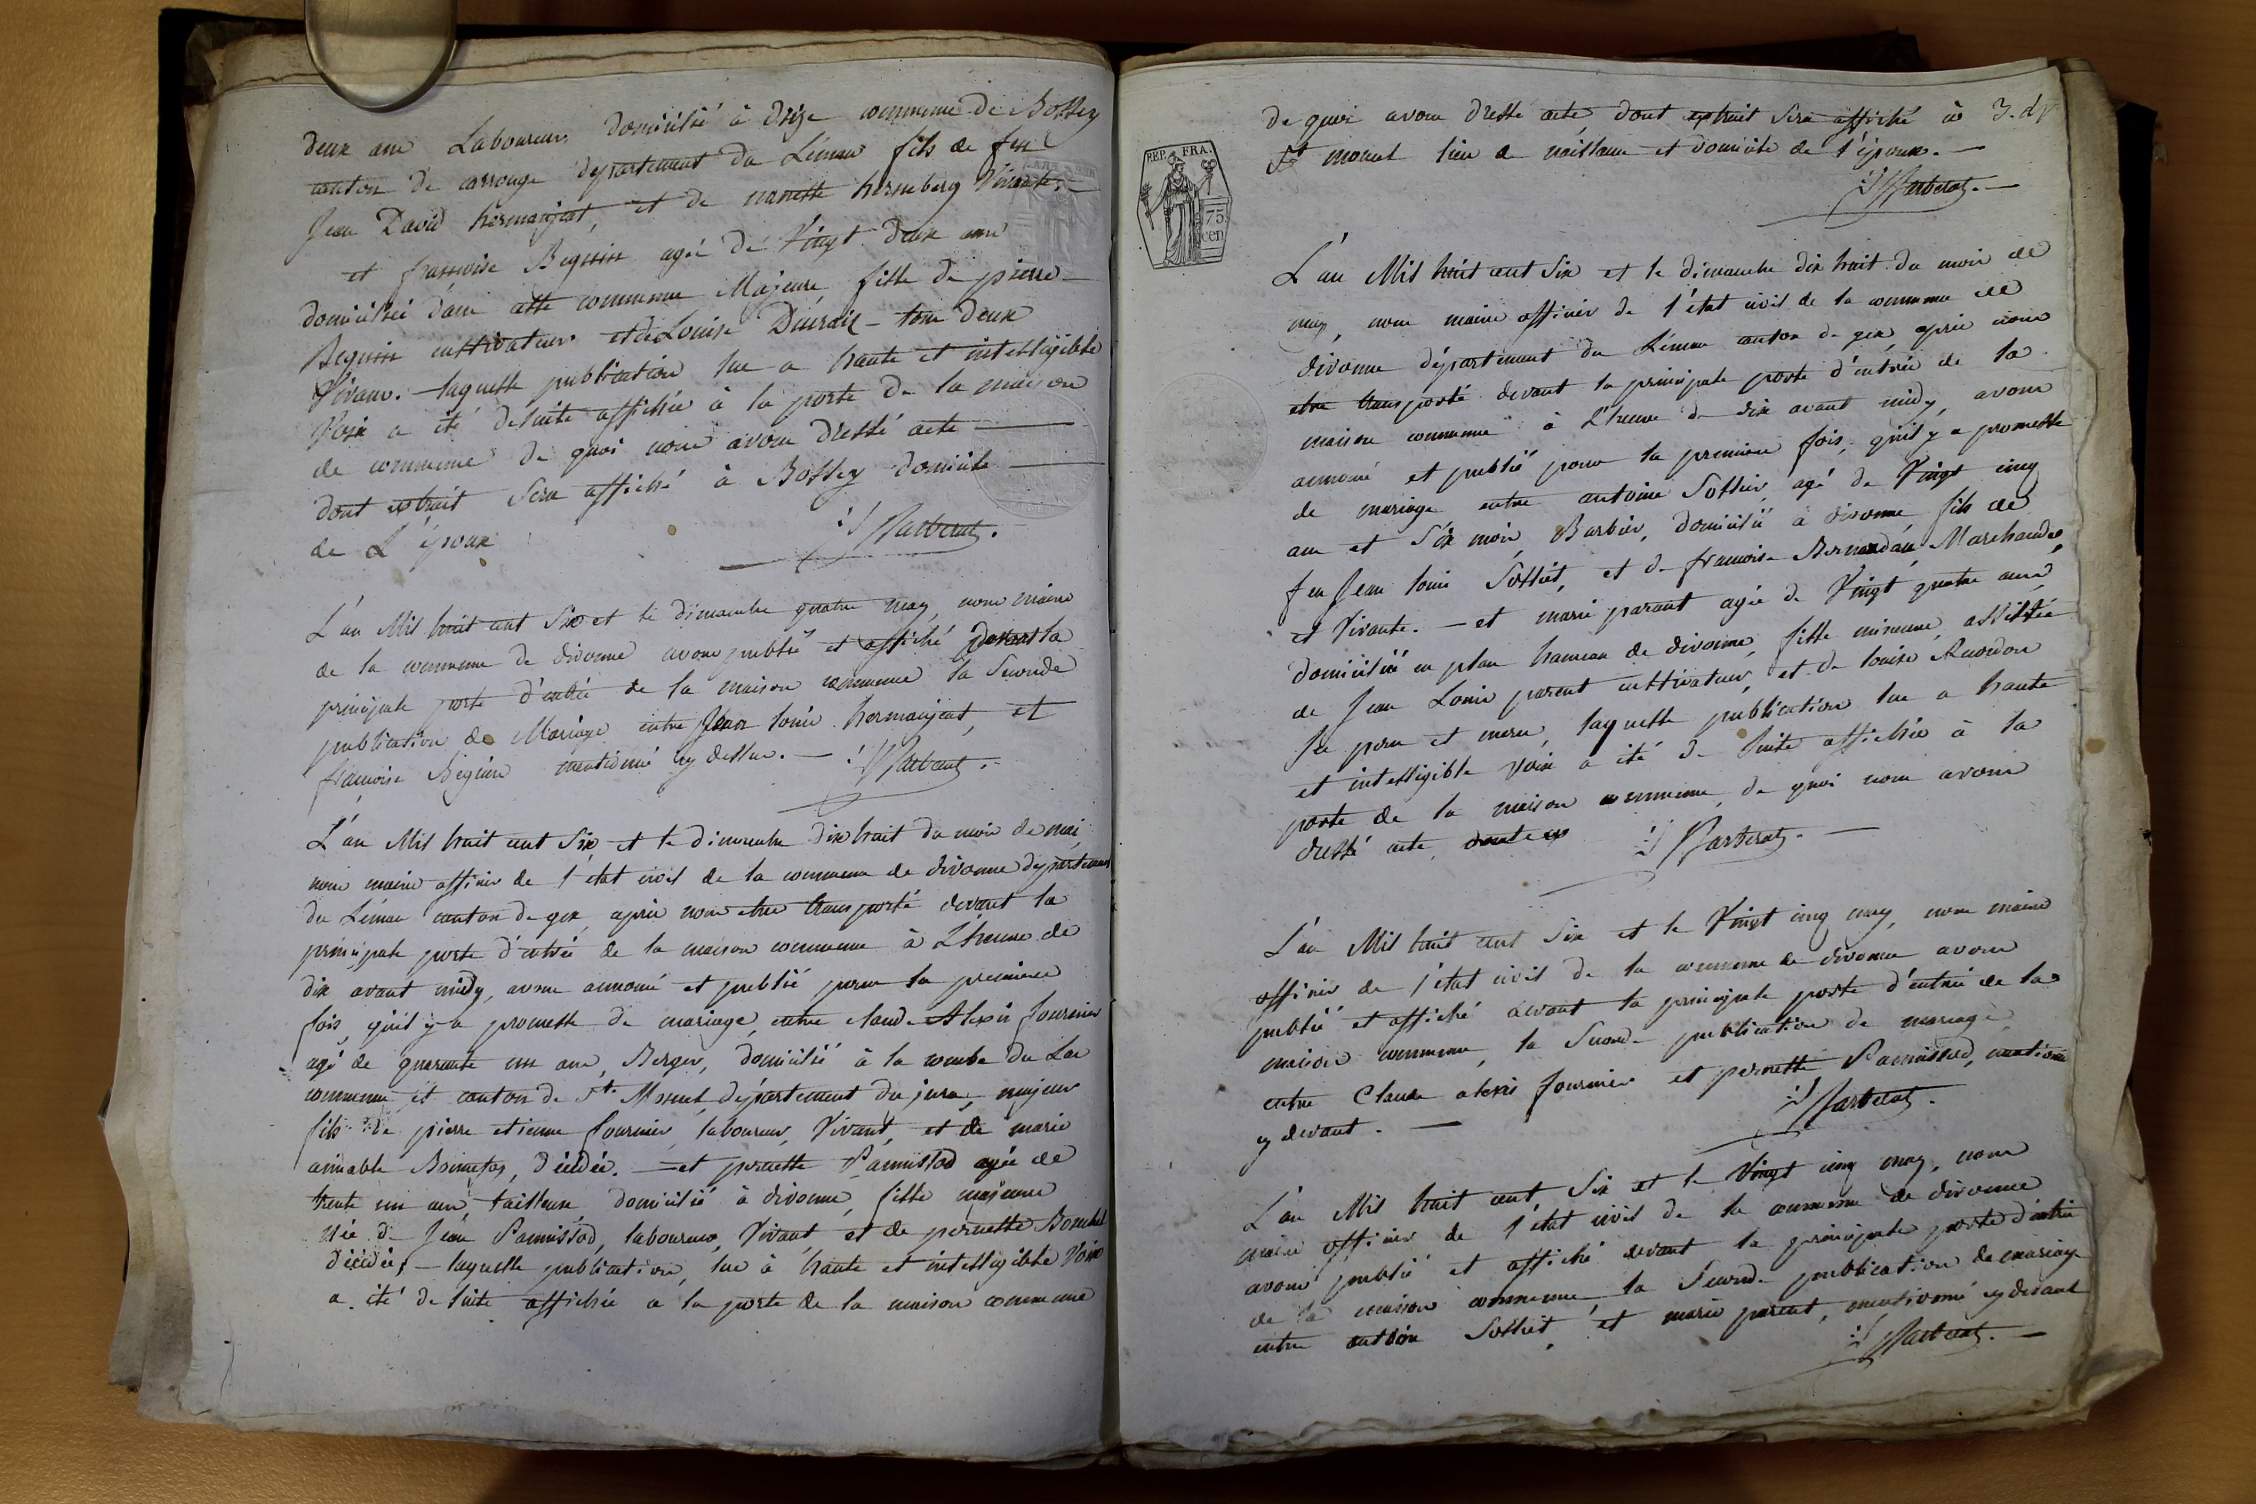 deux ans Laboureur domicilié à drize commune de Bossey
canton de carrouge département du Léman fils de feu
Jean David hermanjeat, et de nanette herneberg Vivante,
et françoise Beguin agée de Vingt deux ans
domiciliée dans cette commune Majeure fille de pierre
Beguin cultivateur et de Louise tous deux
Vivans. - laquelle publication lue a haute et intelligible
Voix a été desuite affichée à la porte de la maison
de commune de quoi nous avons dressé acte
dont extrait sera affiché à Bossey domicile
de L'époux
Barberat.
L'an Mil huit cent Six et le dimanche quatre may, nous maire
de la commune de divonne avons publié et affiché devant la
principale porte d'entrée de la maison commune la Seconde
publication de Mariage entre Jean louis hermanjeat, et
françoise Beguin mentionné cy dessus. - Barberat.
L'an Mil huit cent Six, et le dimanche dix huit du mois de mai,
nous maire officier de l'état civil de la commune de divonne département
du Léman canton de gex, après nous etre transporté devant la
principale porte d'entrée de la maison commune à L'heure de
dix avant midy, avons annoncé et publié pour la premiere
fois, qu'il y a promesse de mariage, entre claude Alexis fournier
agé de quarante un ans, Berger, domicilié à la combe du Lac
commune et canton de St. Mourel, département du jura, majeur
fils de pierre etienne fournier, laboureur, Vivant, et de marie
aimable décédée. - et pernette Pannissod agée de
trente un ans tailleuse domicilié à divonne, fille majeure
née de Jean Pannissod, laboureur, Vivant, et de pernette
décédée, - laquelle publication, lue à haute et intelligible Voix
a été de suite affichée a la porte de la maison commune
de quoi avons dressé acte, dont extrait sera affiché à
St mourel lieu de naissance et domicile de l'époux. -
Barberat. -
REP. FRA.
75
cen
L'an Mil huit cent Six et le dimanche dix huit du mois de
may, nous maire officier de l'état civil de la commune de
divonne département du Léman canton de gex, après nous
etre transporté devant la principale porte d'entrée de la
maison commune à L'heure de dix avant midy, avons
annoncé et publié pour la premiere fois, qu'il y a promesse
de mariage entre antoine Sottiet, agé de Vingt cinq
ans et Six mois, Barbier, domicilié à divonne fils de
feu Jean louis Sottiet, et de francoise Marchande,
et Vivante. - et marie parent agée de Vingt quatre ans,
domiciliée en plan hameau de divonne, fille mineure, assistée
de Jean Louis parent cultivateur, et de louise
Ses pere et mere, laquelle publication lue a haute
et intelligible Voix a été de suite affichée à la
porte de la maison commune, de quoi nous avons
dressé acte, Barberat. -
L'an Mil huit cent Six et le Vingt cinq may, nous maire
officier de l'état civil de la commune de divonne avons
publié et affiché devant la principale porte d'entrée de la
maison commune, la Seconde publication de mariage
entre Claude alexis fournier et pernette Pannissod,
cy devant. - Barberat.
L'an Mil huit cent Six et le Vingt cinq may, nous
maire officier de l'état civil de la commune de divonne
avons publié et affiché devant la principale porte d'entrée
de la maison commune, la Seconde publication de mariage
entre antoine Sottiet, et marie parent, mentionné cy devant
Barberat. -